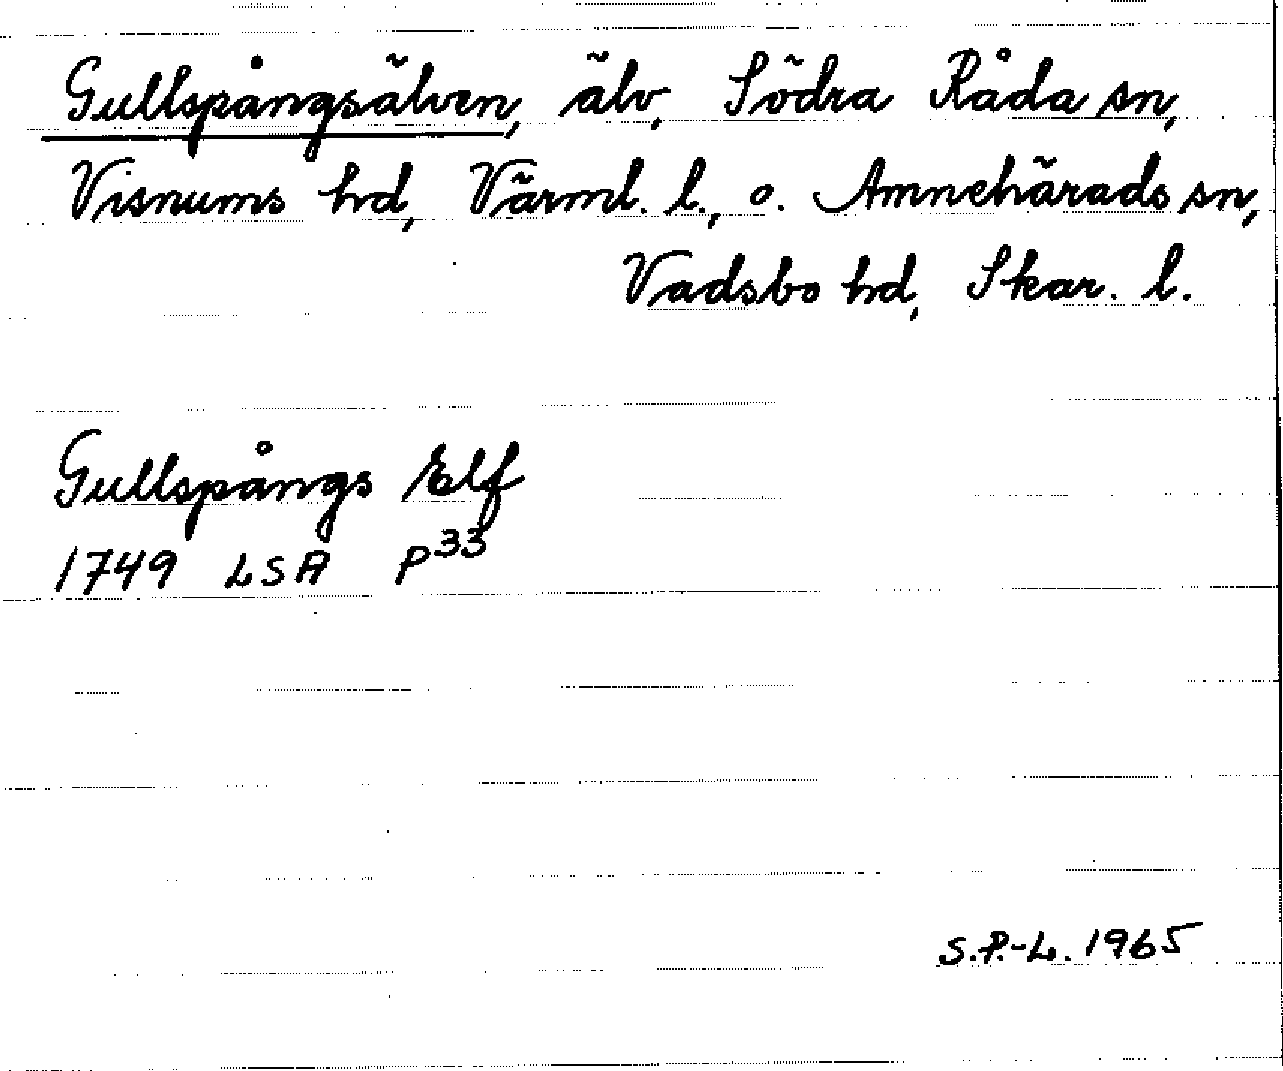 Gullspångsälven, älv, Södra Råda sn,
Visnums hd, Värml. l., o. Amnehärads sn,
Vadsbo hd, Skar. l.
Gullspångs Elf
1749 LSA P33
S.P.-L. 1965